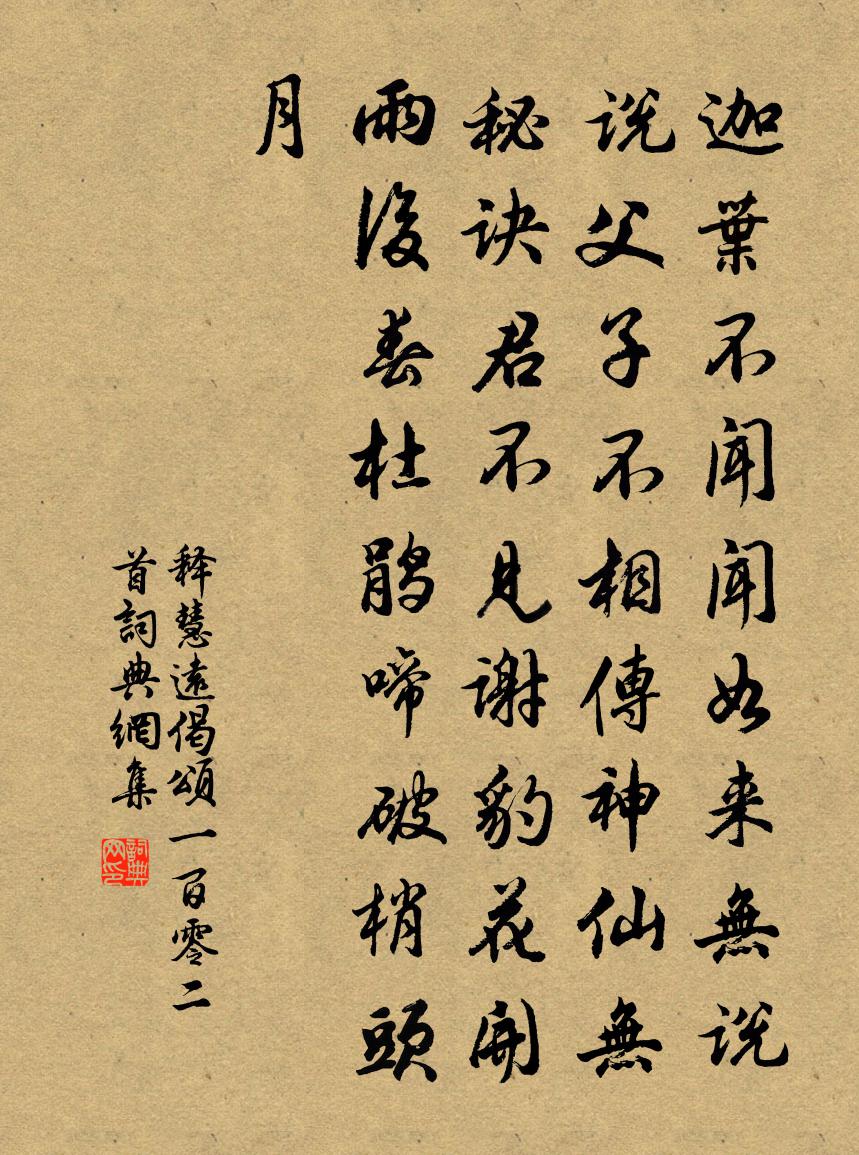 迦葉不聞聞如来無說
說父子不相傳神仙無
秘訣君不見謝豹花開
雨後春杜鵑啼破梢頭
月
释慧遠偈頌一百零二
首詞典網集
詞典
网印